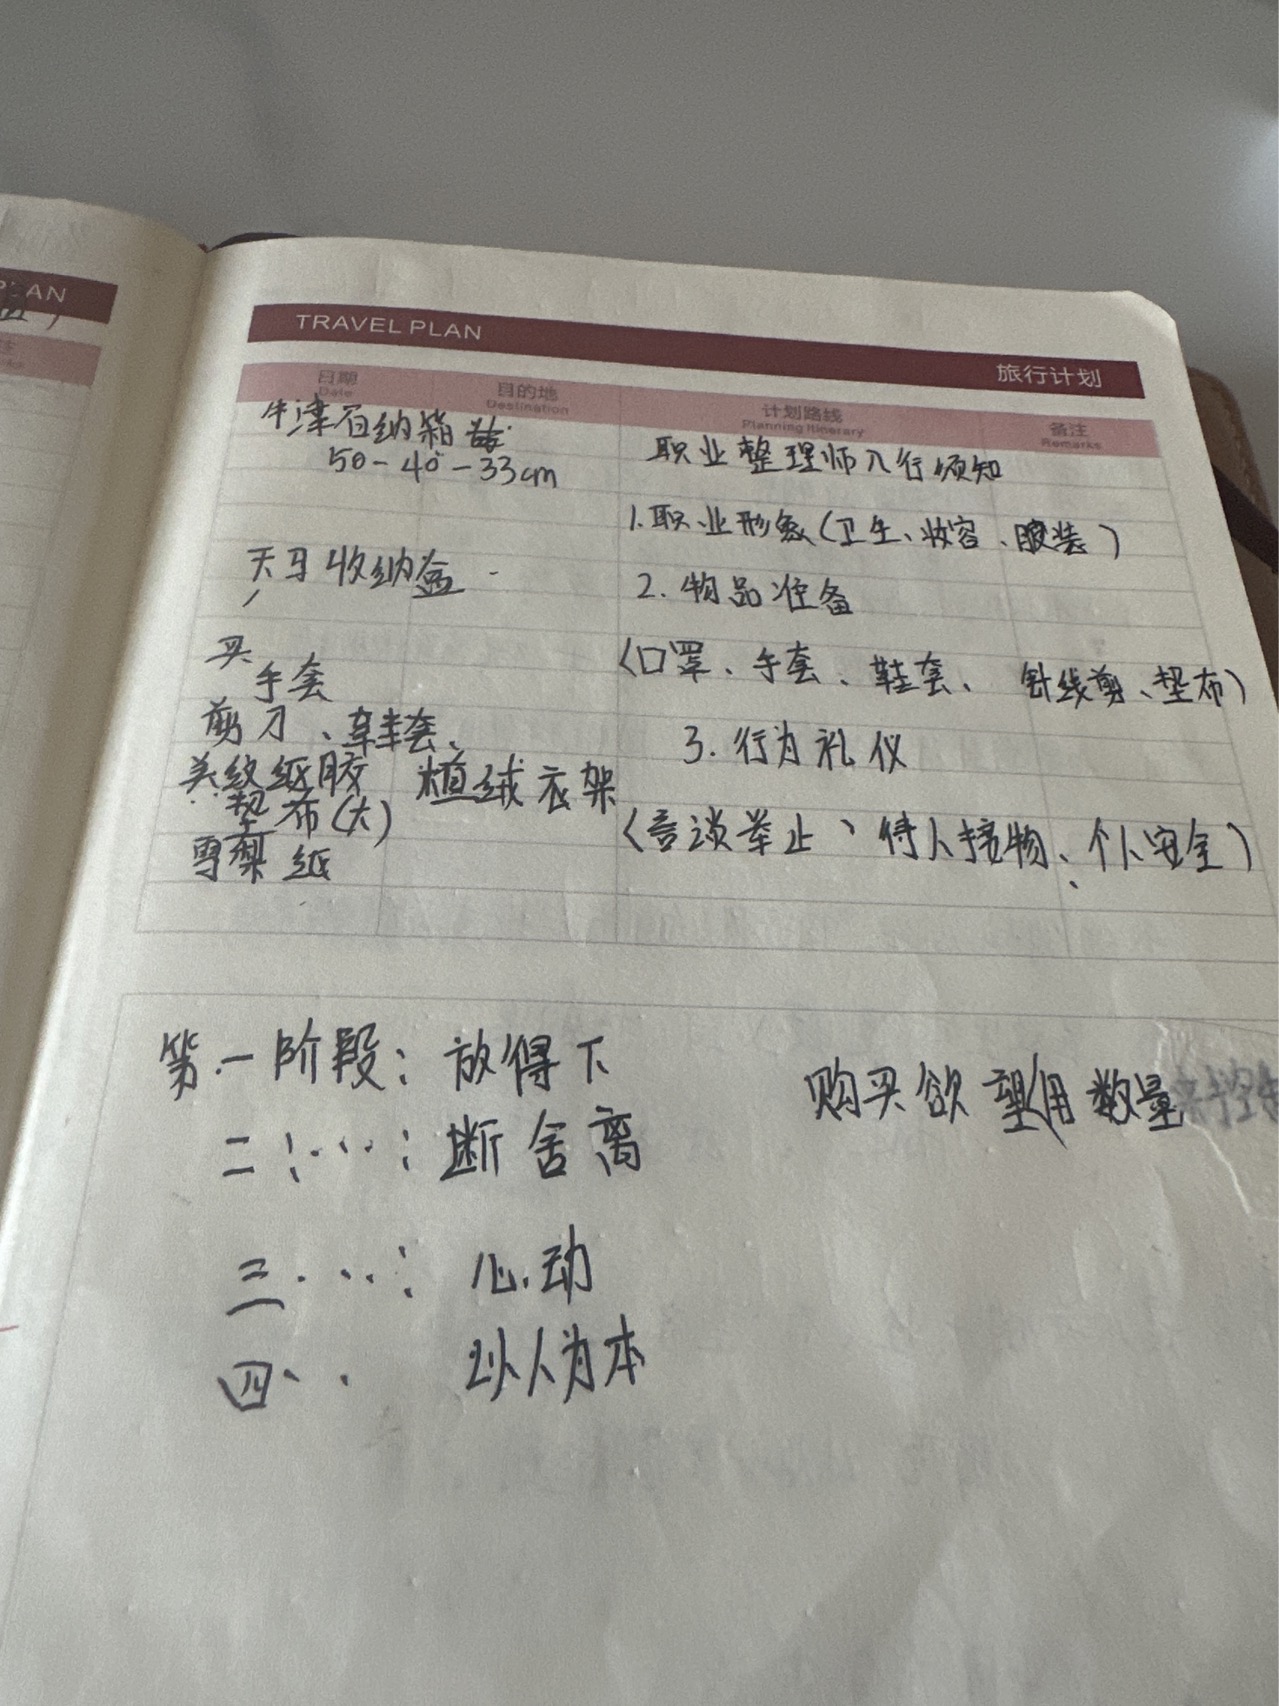 PLAN
TRAVEL PLAN
旅行计划
日期 目的地 计划路线 备注
Date Destination Planning Itinerary Remarks
牛津百纳箱
50-40-33cm
天马收纳盒
买
手套
剪刀、鞋套、
美纹纸胶
植绒衣架
垫布(大)
雪梨纸
职业整理师入行须知
1.职业形象(卫生、妆容、服装)
2.物品准备
(口罩、手套、鞋套、针线剪、垫布)
3.行为礼仪
(言谈举止、待人接物、个人安全)
第一阶段:放得下
二:···:断舍离
三···:心动
四·· 以人为本
购买欲望用数量